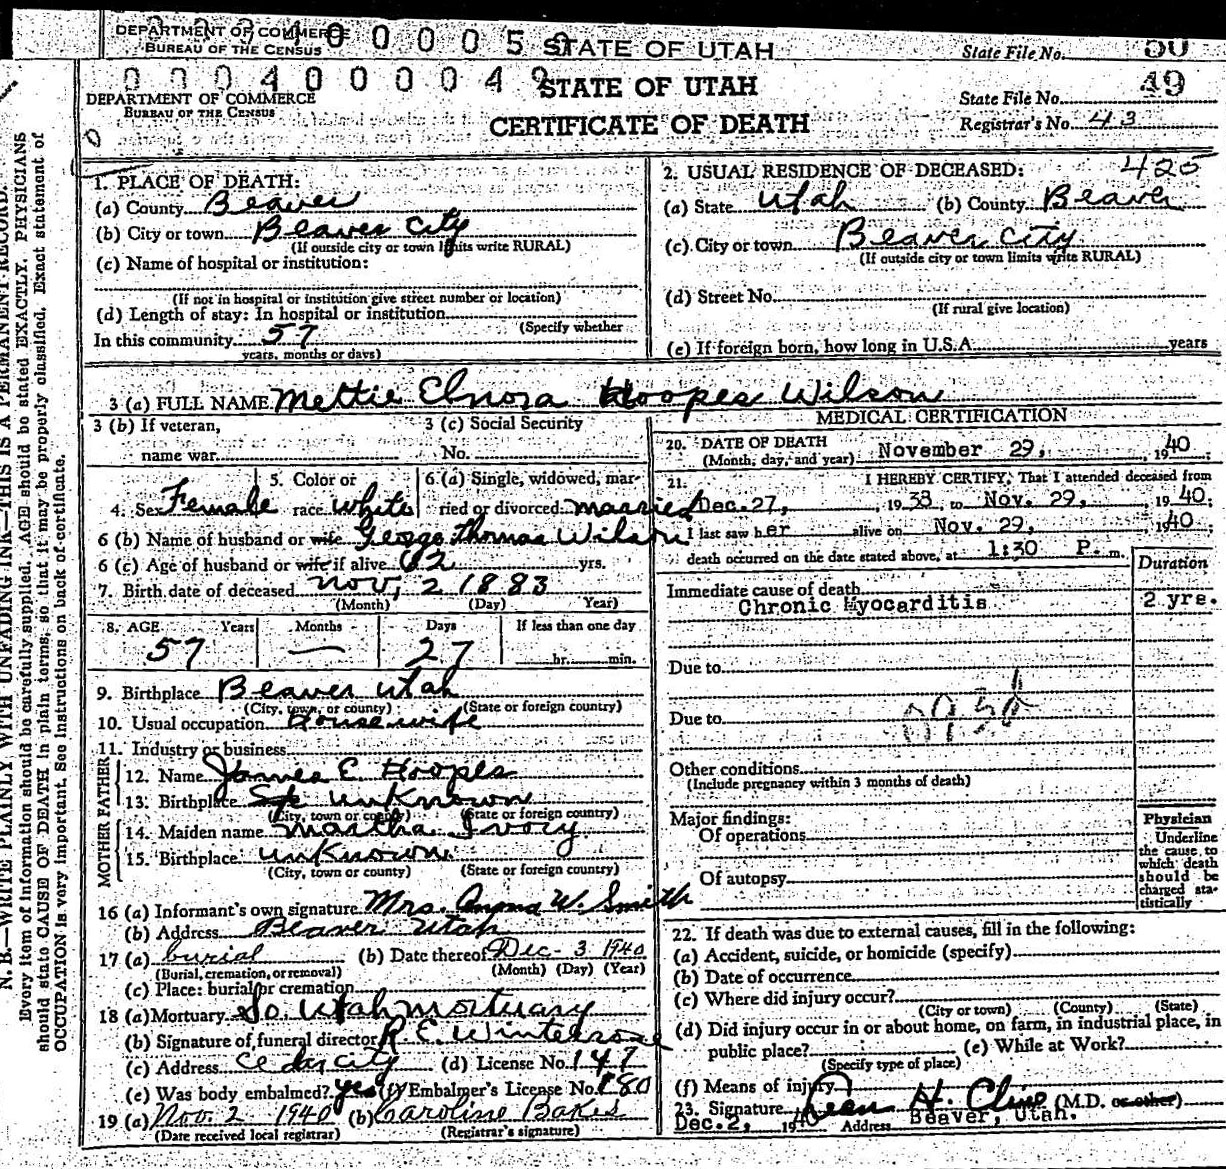 DEPARTMENT OF COMMERCE
BUREAU OF THE CENSUS
STATE OF UTAH
State File No. 50
0 0 0 4 0 0 0 0 4 9
STATE OF UTAH
49
DEPARTMENT OF COMMERCE
BUREAU OF THE CENSUS
State File No.
CERTIFICATE OF DEATH
Registrar's No. 43
N. B.—WRITE PLAINLY WITH UNFADING INK—THIS IS A PERMANENT RECORD.
Every item of information should be carefully supplied. AGE should be stated EXACTLY. PHYSICIANS
should state CAUSE OF DEATH in plain terms, so that it may be properly classified. Exact statement of
OCCUPATION is very important. See instructions on back of certificate.
1. PLACE OF DEATH:
(a) County Beaver
(b) City or town Beaver City
(If outside city or town limits write RURAL)
(c) Name of hospital or institution:
(If not in hospital or institution give street number or location)
(d) Length of stay: In hospital or institution
(Specify whether
In this community 57
years, months or days)
2. USUAL RESIDENCE OF DECEASED: 425
(a) State Utah (b) County Beaver
(c) City or town Beaver City
(If outside city or town limits write RURAL)
(d) Street No.
(If rural give location)
(e) If foreign born, how long in U.S.A. years
3 (a) FULL NAME Mettie Elnora Hoopes Wilson
3 (b) If veteran,
name war
3 (c) Social Security
No.
4. Sex Female
5. Color or
race White
6. (a) Single, widowed, mar-
ried or divorced married
6 (b) Name of husband or wife George Thomas Wilson
6 (c) Age of husband or wife if alive 62 yrs.
7. Birth date of deceased Nov, 2 1883
(Month) (Day) Year)
8. AGE Years Months Days If less than one day
57 — 27 hr. min.
9. Birthplace Beaver Utah
(City, town, or county) (State or foreign country)
10. Usual occupation Housewife
11. Industry or business
FATHER
12. Name James E. Hoopes
13. Birthplace unknown
(City, town or county) (State or foreign country)
MOTHER
14. Maiden name Martha Ivory
15. Birthplace unknown
(City, town or county) (State or foreign country)
16 (a) Informant's own signature Mrs. Anna W. Smith
(b) Address Beaver Utah
17 (a) burial (b) Date thereof Dec - 3 1940
(Burial, cremation, or removal) (Month) (Day) (Year)
(c) Place: burial or cremation
18 (a) Mortuary So. Utah Mortuary
(b) Signature of funeral director R. E. Winterrose
(c) Address Cedar City (d) License No. 147
(e) Was body embalmed? yes (f) Embalmer's License No. 180
19 (a) Nov. 2 1940 (b) Caroline Bakes
(Date received local registrar) (Registrar's signature)
MEDICAL CERTIFICATION
20. DATE OF DEATH
(Month, day, and year) November 29, 1940
21. I HEREBY CERTIFY, That I attended deceased from
Dec. 27, 1938, to Nov. 29, 1940;
I last saw her alive on Nov. 29, 1940
death occurred on the date stated above, at 1:30 P. m.
Duration
Immediate cause of death
Chronic Myocarditis 2 yrs.
Due to
Due to
Other conditions
(Include pregnancy within 3 months of death)
Major findings:
Of operations
Of autopsy
Physician
Underline
the cause to
which death
should be
charged sta-
tistically
22. If death was due to external causes, fill in the following:
(a) Accident, suicide, or homicide (specify)
(b) Date of occurrence
(c) Where did injury occur?
(City or town) (County) (State)
(d) Did injury occur in or about home, on farm, in industrial place, in
public place? (e) While at Work?
(Specify type of place)
(f) Means of injury
23. Signature H. Cline (M.D. or other)
Dec. 2, 1940 Address Beaver, Utah.